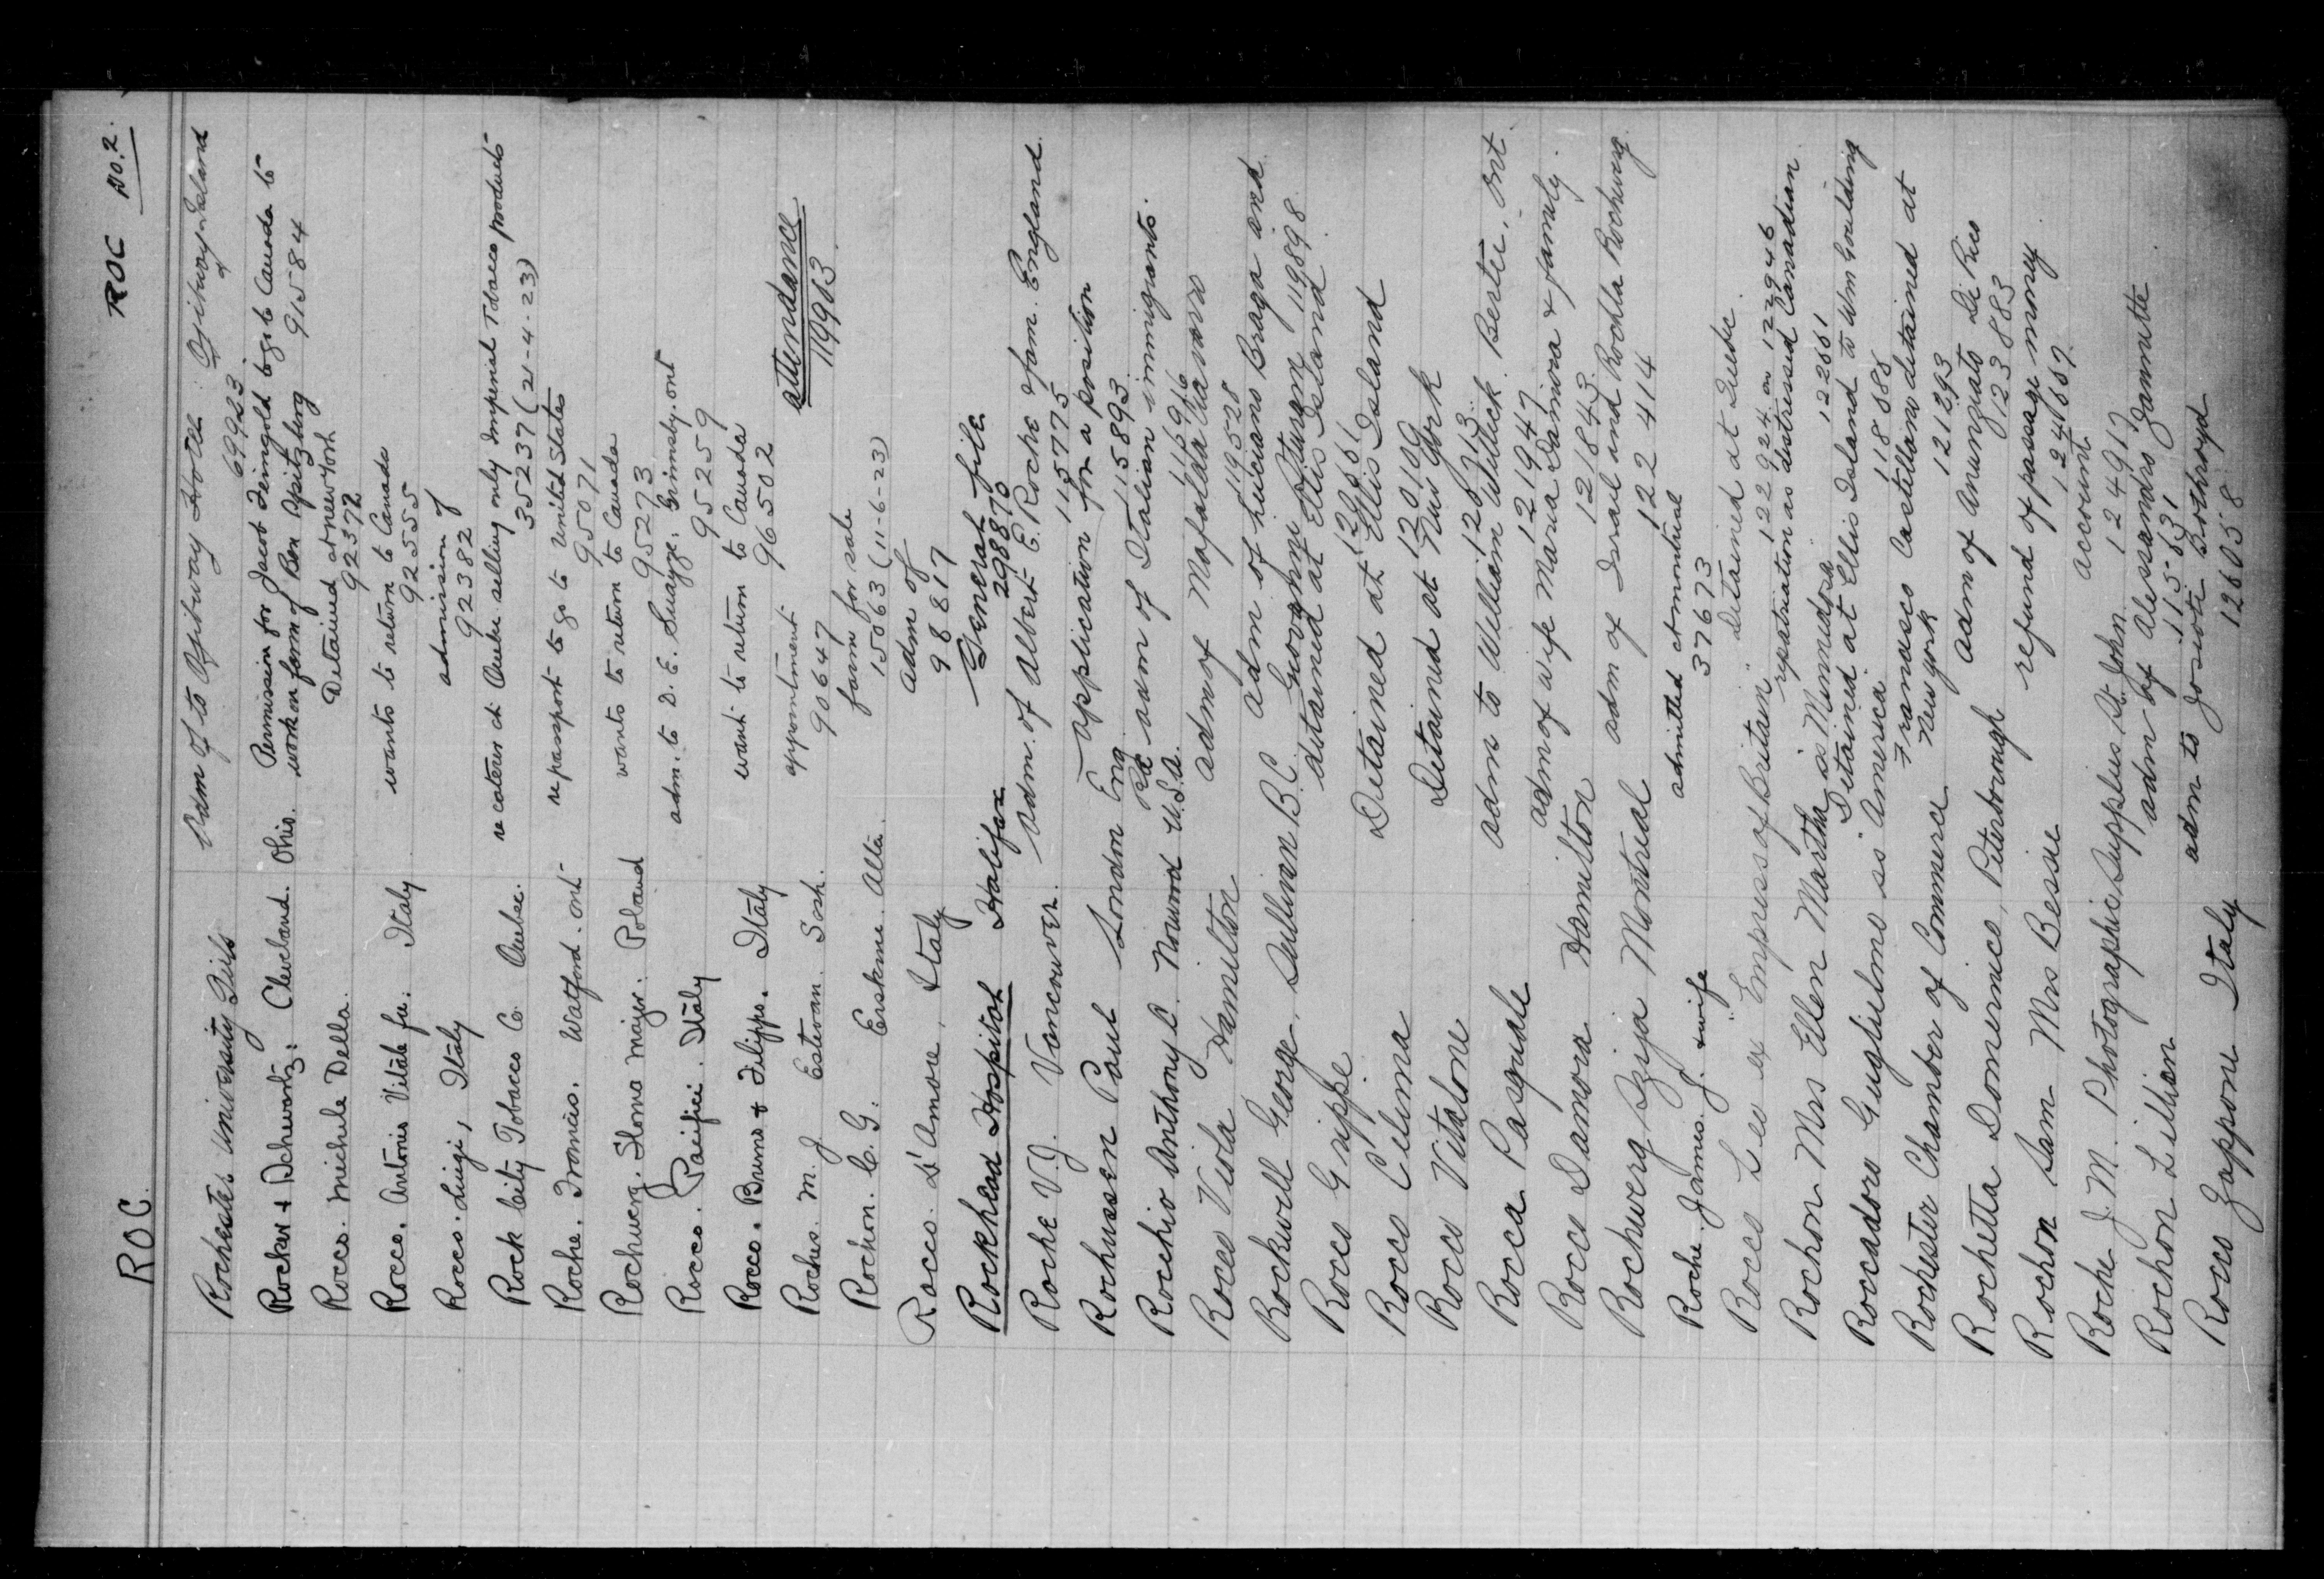 ROC. ROC No. 2.
Rochester University Girls Adm of to Ojibway Hotel: Ojibway Island
69923
Rocker & Schwartz: Cleveland. Ohio. Permission for Jacob Feingold to go to Canada to
work on farm of Ben Spitzburg 91584
Rocco. Michele Della. Detained at New York
92372
Rocco. Antonio Vitale fu: Italy wants to return to Canada
92555
Rocco. Luigi, Italy admission of
92382
Rock City Tobacco Co. Quebec. re caterer at Quebec selling only Imperial Tobacco products
35237 (21-4-23)
Roche. Francis. Watford. Ont re passport to go to United States
95071
Rochwerg. Major. Poland wants to return to Canada
95273
Rocco. Pacifici. Italy adm. to D. E. Swayze. Grimsby. Ont
95259
Rocco. Bruno & Filippo. Italy want to return to Canada
96502
Roches. M. J. Estevan. Sask. appointment attendance
90647 119913
Rochon. C. G. Erskine. Alta. farm for sale
15063 (11-6-23)
Rocco. D'Amore, Italy adm of
98817
Rockhead Hospital Halifax General file
298870
Roche V.J. Vancouver. adm. of Albert E. Roche & fam. England
115775
Rochussen Paul London Eng. application for a position
115893
Rocchio Anthony C. Norwood R.I. U.S.A. adm of Italian immigrants.
116916
Rocco Viola Hamilton adm of Mafalda
119528
Rockwell George, Sullivan B.C. adm of Luciano Braga and
Giovanni 119898
Rocco Grippe detained at Ellis Island
Rocco Celima Detained at Ellis Island
12010
Rocco Vitalone Detained at New York
Rocca Pasquale adm to William Willick. Bertie, Ont
121947
Rocco Damora Hamilton adm of wife Maria Damora & family.
121843
Rochwerg Ryja Montreal adm of Israel and Rochla Rochwerg.
122414
Roche. James. J. & wife admitted at Montreal
37673
Rocco Leo ex Empress of Britain Detained at Quebec.
122924 on 122946
Rochon Mrs Ellen Martha ss Minnedosa repatriation as distressed Canadian.
122661
Roccadoro Guglielmo ss America Detained at Ellis Island to Wm Goulding
118888
Rochester Chamber of Commerce Francesco Castellano detained at
New York 121293
Rochetta Domenico, Peterborough adm of Anunziato De Rico
123883
Rochon Sam Mrs Bessie refund of passage money
124669
Roche J. M. Photographic Supplies St. John account
124917
Rochon Lillian adm of Alessandro Jannutte
115631
Rocco Zappone Italy adm to Josiah Bothroyd
126058